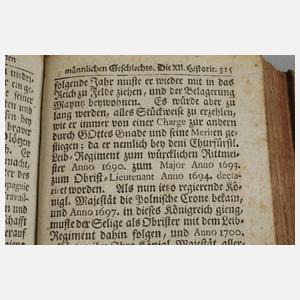 männlichen Geschlechts. Die XII. Historie. 315
folgende Jahr muste er wieder mit in das
Reich zu Felde ziehen, und der Belagerung
Mayntz beywohnen. Es würde aber zu
lang werden, alles Stückweise zu erzehlen,
wie er immer von einer Charge zur andern
durch GOttes Gnade und seine Meriten ge-
stiegen; da er nemlich bey dem Churfürstl.
Leib-Regiment zum würcklichen Rittmei-
ster Anno 1690. zum Major Anno 1693.
zum Obrist-Lieutenant Anno 1694. decla-
riret worden. Als nun ietzo regierende Kö-
nigl. Majestät die Polnische Crone bekam,
und Anno 1697. in dieses Königreich gieng,
muste der Selige als Obrister mit dem Leib-
Regiment dahin folgen, und Anno 1700.
Königl. Majestät aller-